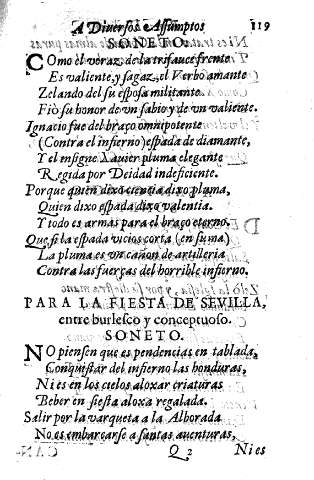 A Diversos Assumptos 119
SONETO.
COmo el voraz de la trifauce frente
Es valiente, y sagaz, el Verbo amante
Zelando del su esposa militante
Fiò su honor de vn sabio y de vn valiente.
Ignacio fue del braço omnipotente
(Contra el infierno) espada de diamante,
Y el insigne Xauier pluma elegante
Regida por Deidad indeficiente.
Porque quien dixo ciencia dixo pluma,
Quien dixo espada dixo valentia.
Y todo es armas para el braço eterno.
Que si la espada vicios corta (en suma)
La pluma es un cañon de artilleria
Contra las fuerças del horrible infierno.
PARA LA FIESTA DE SEVILLA,
entre burlesco y conceptuoso.
SONETO.
NO piensen que es pendencias en tablada,
Conquistar del infierno las honduras,
Ni es en los cielos aloxar criaturas
Beber en siesta aloxa regalada.
Salir por la varqueta a la Alborada
No es embarcarse a santas auenturas,
Q 2 Ni es